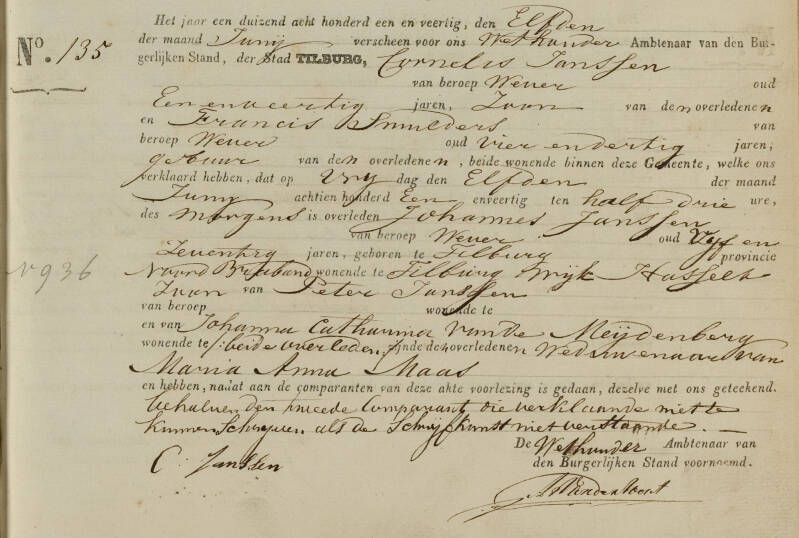 Het jaar een duizend acht honderd een en veertig, den Elfden
No. 135 der maand Junij verscheen voor ons Wethouder Ambtenaar van den Bur-
gerlijken Stand, der Stad TILBURG, Cornelis Janssen
van beroep Wever oud
Een enveertig jaren, Zoon van den overledenen
en Francis Smulders van
beroep Wever oud vier endertig jaren,
gebuur van den overledenen, beide wonende binnen deze Gemeente, welke ons
verklaard hebben, dat op Vrij dag den Elfden der maand
Junij achtien honderd Een enveertig ten half drie ure,
des morgens is overleden Johannes Janssen
van beroep Wever oud Vijf en
Zeventig jaren, geboren te Tilburg provincie
N 936 Noord Braband wonende te Tilburg Wijk Hasselt
Zoon van Peter Janssen
van beroep wonende te
en van Johanna Catharina van de Meijdenberg
wonende te /: beide overleden :/ zijnde den overledenen Weduwenaar van
Maria Anna Maas
en hebben, nadat aan de comparanten van deze akte voorlezing is gedaan, dezelve met ons geteekend.
behalven den tweede Comparant, die verklaarde niet te
kunnen Schrijven als de Schrijfkunst niet verstaande. —
De Wethouder Ambtenaar van
C. Janssen den Burgerlijken Stand voornoemd.